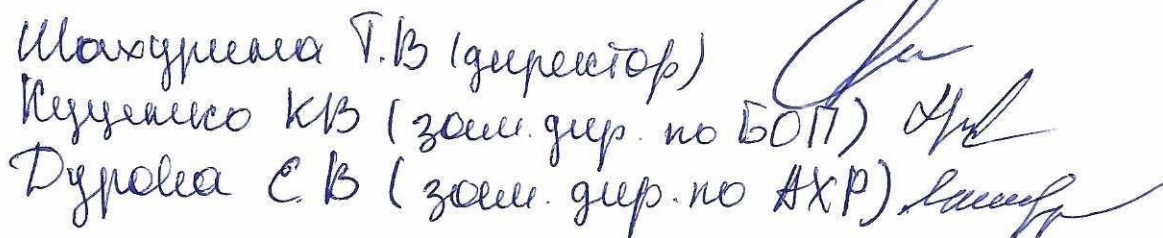 Шахурина Т.В (директор)
Куценко КВ (зам. дир. по БОП)
Дурова С.В (зам. дир. по АХР)